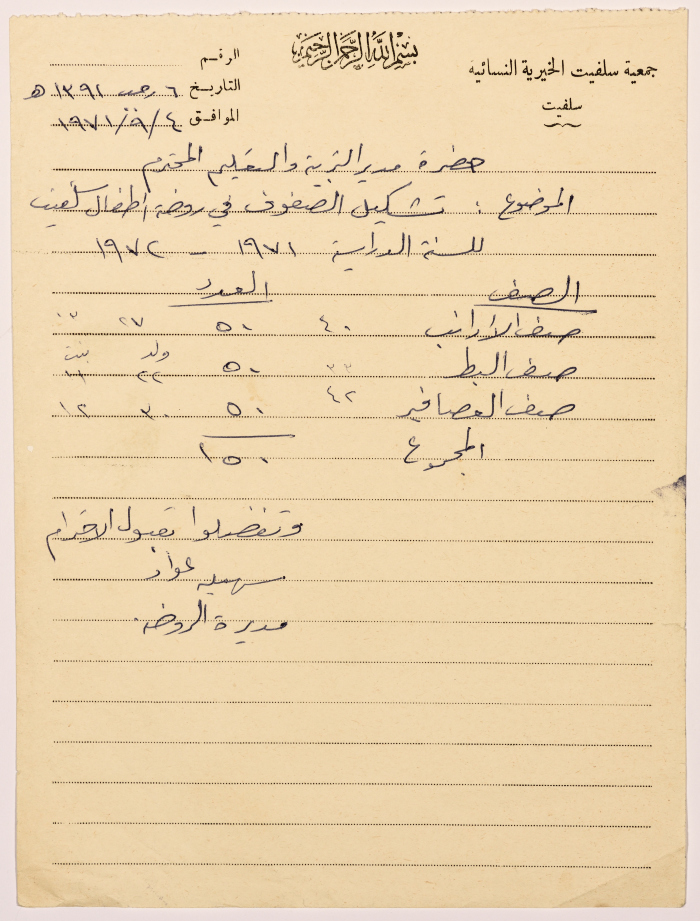 بسم الله الرحمن الرحيم
جمعية سلفيت الخيرية النسائيه
سلفيت
الرقم
التاريخ ٦ رجب ١٣٩١ هـ
الموافق ٤/٩/١٩٧١
حضرة مدير التربية والتعليم المحترم
الموضوع : تشكيل الصفوف في روضة اطفال سلفيت
للسنة الدراسية ١٩٧١ - ١٩٧٢
الصف العدد
صف الأرانب ٤٠ ٥٠ ٢٧
ولد بنت
صف البط ٣٣ ٥٠ ٢٢ ١١
صف العصافير ٤٢ ٥٠ ٣٠ ١٢
المجموع ١٥٠
وتفضلوا بقبول الاحترام
سهيله عواد
مديرة الروضه.